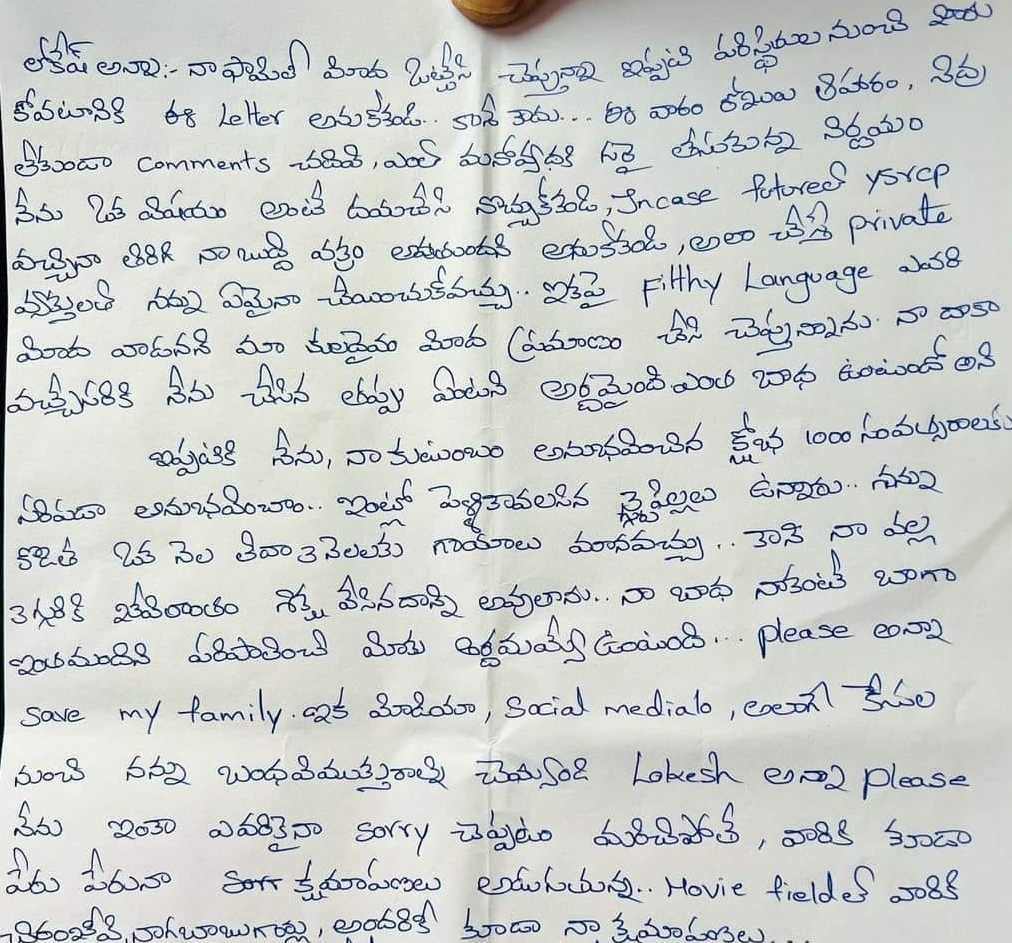 లోకేష్ అన్నా:- నా ఫ్యామిలీ మీద ఒట్టేసి చెప్తున్నా ఇప్పటి పరిస్థితుల నుంచి
కోవటానికి ఈ Letter అనుకోకండి.. కానే కాదు... ఈ వారం రోజులు నిద్ర
లేకుండా comments చదివి, ఎంతో తీసుకున్న నిర్ణయం
నేను ఒక విషయం అంటే దయచేసి నొచ్చుకోకండి, Incase futureలో YSRCP
వచ్చినా తిరిగి నా బుద్ధి వక్రం అవుతుందని అనుకోకండి, అలా చేస్తే private
వ్యక్తులతో నన్ను ఏమైనా చేయించుకోవచ్చు.. ఇకపై Filthy Language ఎవరి
మీద వాడనని మా కులదైవం మీద ప్రమాణం చేసి చెప్తున్నాను. నా దాకా
వచ్చేసరికి నేను చేసిన తప్పు ఏంటని అర్థమైంది ఎంత బాధ ఉంటుందో అని
ఇప్పటికి నేను, నా కుటుంబం అనుభవించిన క్షోభ 1000 సంవత్సరాలకు
సరిపడా అనుభవించాం.. ఇంట్లో పెళ్లికావలసిన ఉన్నారు.. నన్ను
కొడితే ఒక నెల లేదా 3 నెలలకు గాయాలు మానవచ్చు.. కానీ నా వల్ల
3 గ్గురికి జీవితాంతం శిక్ష వేసినదాన్ని అవుతాను.. నా బాధ నాకంటే బాగా
ఇంతమందిని పరిపాలించే మీకు అర్థమయ్యే ఉంటుంది... please అన్నా
save my family. ఇక మీడియా, Social medialo, అలాగే కేసుల
నుంచి నన్ను బంధవిముక్తురాల్ని చెయ్యండి Lokesh అన్నా please
నేను ఇంకా ఎవరికైనా sorry చెప్పటం మరిచిపోతే, వారికి కూడా
పేరు పేరునా క్షమాపణలు అడుగుతున్న.. Movie fieldలో వారికి
చిరంజీవి, నాగబాబుగార్లు, అందరికీ కూడా నా క్షమాపణలు....